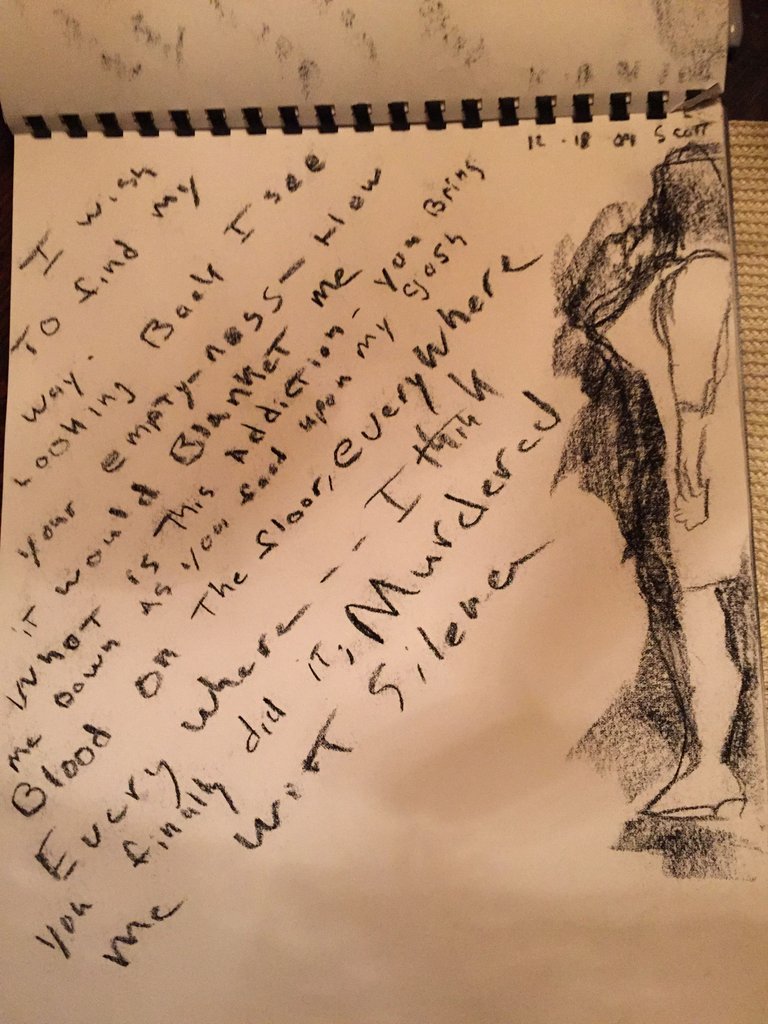 12 - 18 04 Scott
I wish
To find my
way.
Looking Back I see
your empty-ness-
it would Blanket me
What is This Addiction, you Bring
me Down As you feed upon my
Blood on The floor, Everywhere
Every where --- I think
you finally did it, Murdered
me wit Silence